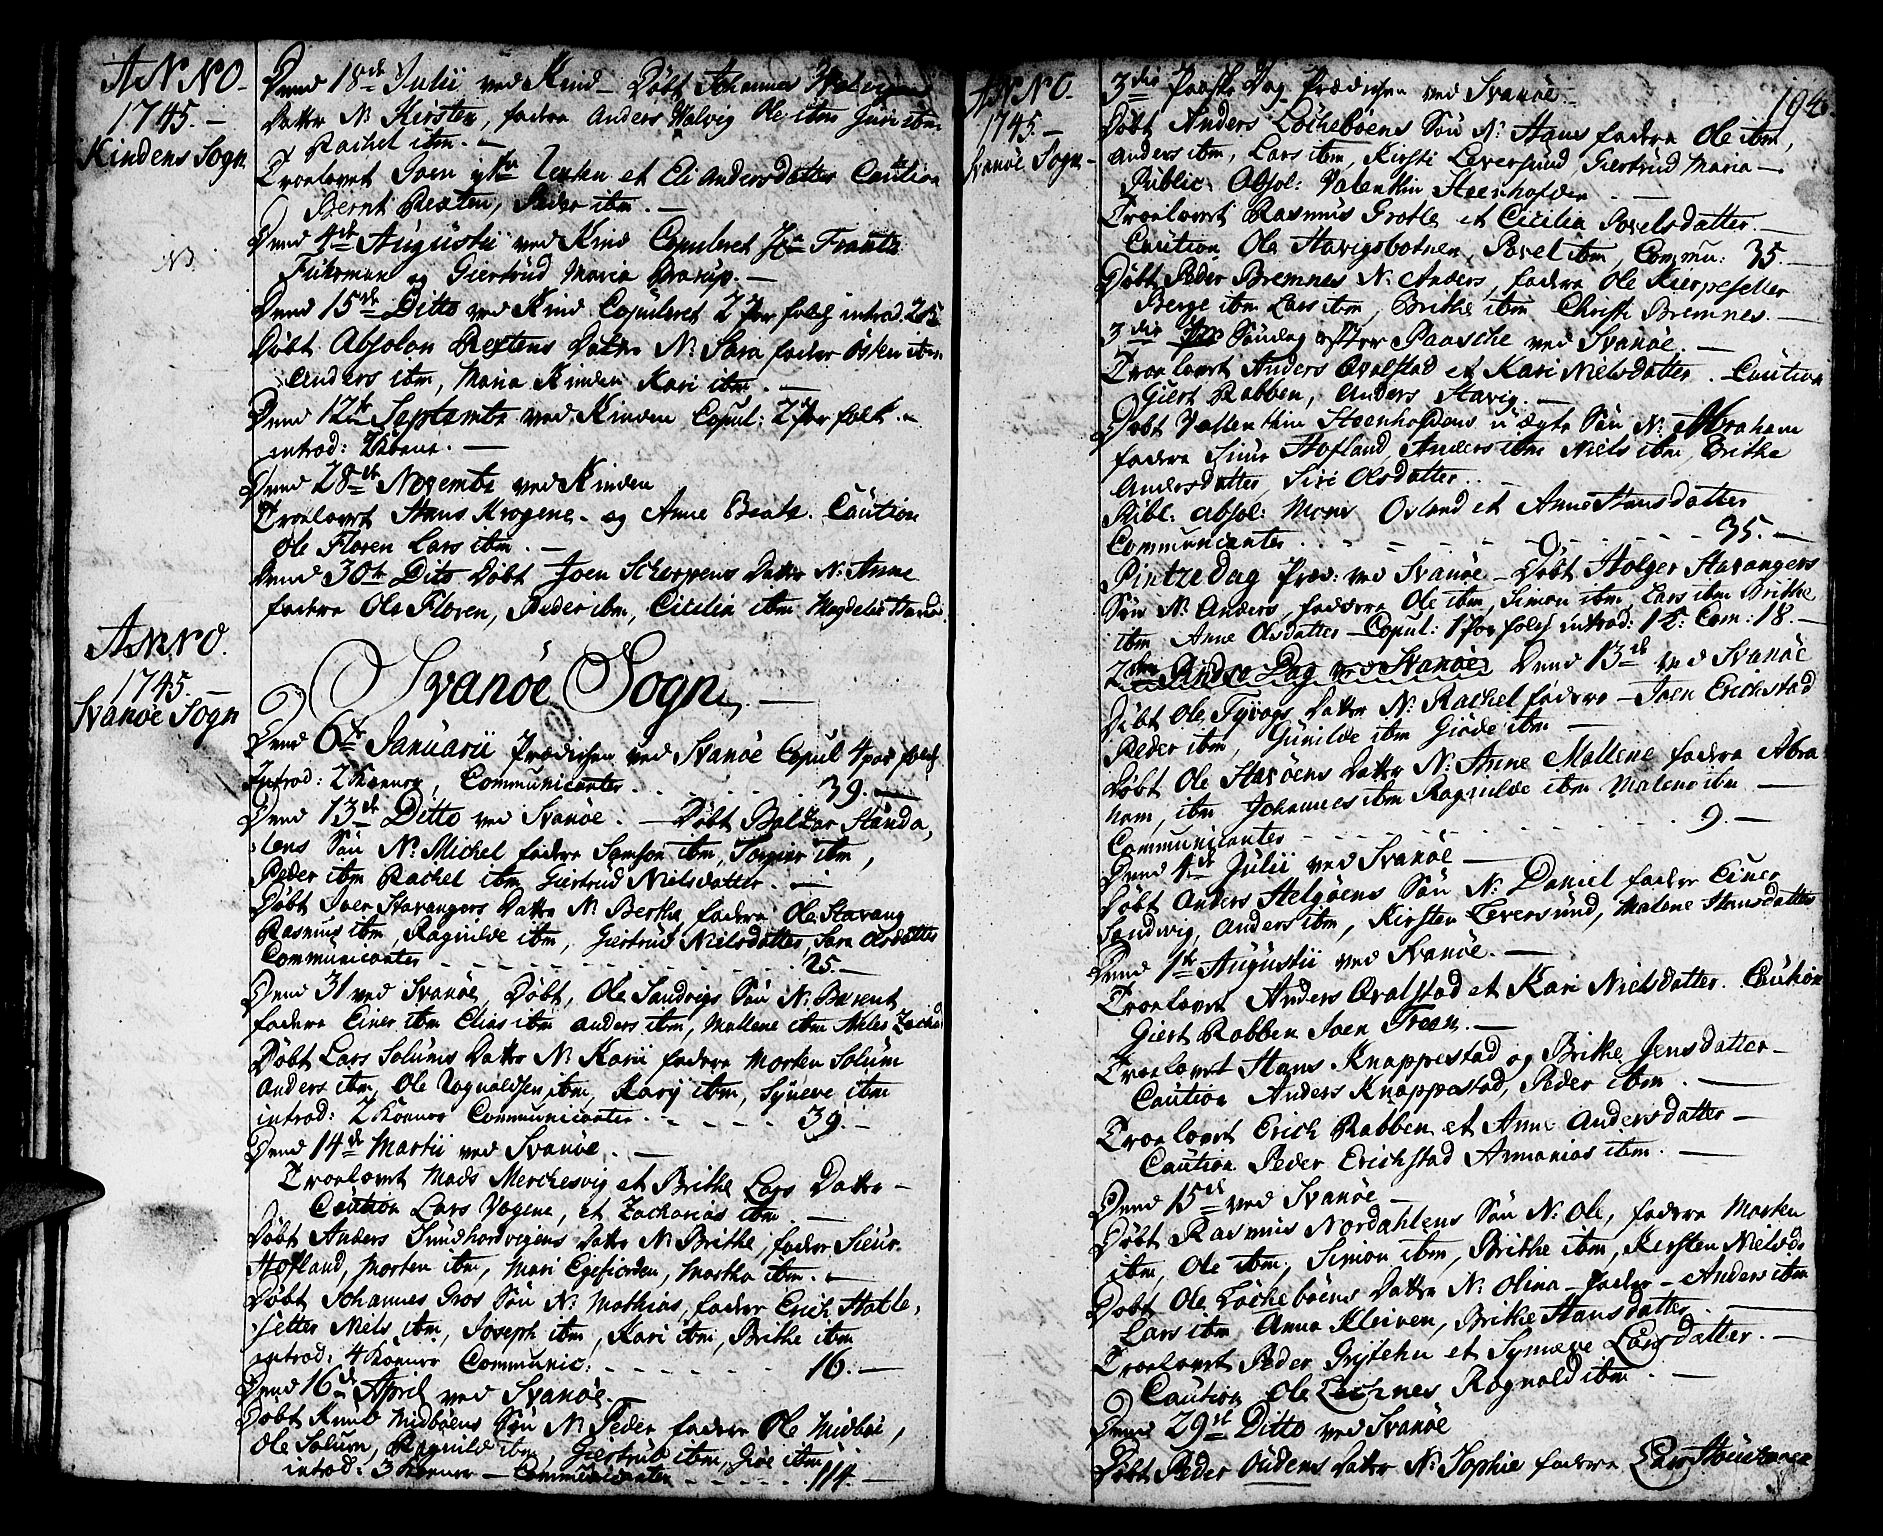 ANNO
1745.
Kindens Sogn
Dend 18de Julii ved Kind Døbt Johannes
Datter N. Kirsten, faddere Anders Halvig Ole ibm Guri ibm
Rachel ibm.
Troelovet Joen et Eli Andersdatter Caution
Bernt Rexten, Peder ibm.
Dend 4de Augustii ved Kind Copuleret Frantz
Fuhrman og Giertrud Maria
Dend 15de Ditto ved Kind Copuleret 2 Par folch introd. 2
Døbt Absolon Rextens Datter N. Sara fadder ibm
Anders ibm, Maria Kinden Kari ibm.
Dend 12te Septembr ved Kinden Copul: 2 Par folk.
introd:
Dend 28de Novembr ved Kinden
Troelovet Hans Krogene og Anne Beate. Caution
Ole Floren Lars ibm.
Dend 30te Dito Døbt Joen Schorpens Datter N: Anne
faddere Ole Floren, Peder ibm, Cicelia ibm
ANNO.
1745.
Svanøe Sogn
Svanøe Sogn
Dend 6te Januarii Prædichen ved Svanøe Copul 4 par folch
Introd: 2 Koenor, Communicanter 39.
Dend 13de Ditto ved Svanøe. Døbt Baltzar Standa,
lens Søn N. Michel faddere Samson ibm, ibm,
Peder ibm Rachel ibm Giertrud Nielsdatter.
Døbt Joen Stavangers Datter N. Bertha, faddere Ole Stavang
Rasmus ibm, Ragnilde ibm, Giertrud Nielsdatter, Sara Olsdatter
Communicanter 25.
Dend 31 ved Svanøe, Døbt, Ole Sandvigs Søn N. Barent
faddere Einer ibm Elias ibm Anders ibm, Mallene ibm
Døbt Lars Solums Datter N. Karii faddere Morten Solum
Anders ibm, Ole ibm, Karj ibm, Syneve ibm
introd: 2 Koenor Communicanter 39.
Dend 14de Martii ved Svanøe.
Troelovet Mads Merchesvig et Brithe Lars Datter
Caution Lars Vogene, et Zacharias ibm
Døbt Anders Datter N. Brithe, fadder Sieur
Hofland, Morten ibm, Mari Egefiorden, Martha ibm.
Døbt Johannes Gros Søn N. Mathias, fadder Erich Hatle,
setter Niels ibm, Joseph ibm, Kari ibm, Brithe ibm
introd: 4 Koenor Communic: 16.
Dend 16de April ved Svanøe
Døbt Knud Midbøens Søn N. Peder faddere Ole Midbøe,
Ole Solum, Ragnild ibm, Giertrud ibm, ibm
introd: 3 Koenor Communicanter 114.
ANNO.
1745.
Svanøe Sogn
194.
3die Paaske Dag Prædichen ved Svanøe.
Døbt Anders Løchebøens Søn N. Hans faddere Ole ibm,
Anders ibm, Lars ibm, Kirsti Leversund, Giertrud Maria
Public: Absol: Valentin Steenhofden
Troelovet Rasmus Grotle et Cicilia Povelsdatter.
Caution Ole Havigsbotnen, Povel ibm, Commu: 35.
Døbt Peder Bremnes N. Anders, faddere Ole Kierpesetter
Berge ibm Lars ibm, Brithe ibm Christi Bremnes.
3die Søndag efter Paasche ved Svanøe.
Troelovet Anders Qvalstad et Kari Nielsdatter. Caution
Giert Rabben, Anders Havig.
Døbt Vallentin Steenhofdens u-ægte Søn N. Abraham
faddere Siuur Hofland, Anders ibm Niels ibm, Brithe
Andersdatter Siri Olsdatter.
Publ: Absol: Mons Osland et Anne Hansdatter
Communicanter 35.
Pintzedag Præd: ved Svanøe Døbt Holger Stavangers
Søn N. Anders, faddere Ole ibm, Simon ibm, Lars ibm Brithe
ibm Anne Olsdatter Copul: 1 Par folch introd: 1 K: Com: 18.
2den Pindse Dag ved Svanøe Dend 13de ved Svanøe
Døbt Ole Tyvogs Datter N. Rachel faddere Joen Erichstad
Peder ibm, Gunilde ibm Giøde ibm
Døbt Ole Havøens Datter N. Anne Mallene faddere Abra
ham, ibm Johannes ibm Ragnilde ibm Malene ibm
Communicanter 9.
Dend 4de Julii ved Svanøe
Døbt Anders Helgøens Søn N. Daniel faddere Einer
Sandvig, Anders ibm, Kirsten Leversund, Malene Hansdatter
Dend 1te Augustii ved Svanøe.
Troelovet Anders Qvalstad et Kari Nielsdatter. Caution
Giert Rabben Joen Treen.
Troelovet Hans Knappestad og Brithe Jensdatter
Caution Anders Knappestad, Peder ibm.
Troelovet Erich Rabben et Anne Andersdatter
Caution Peder Erichstad Ammanias ibm.
Dend 15de ved Svanøe
Døbt Rasmus Nordahlens Søn N. Ole, faddere Morten
ibm, Ole ibm, Simon ibm, Brithe ibm, Kirsten Nielsd
Døbt Ole Løchebøens Datter N. Olina fadder Anders ibm
Lars ibm Anna Kleiven, Brithe Hansdatter
Troelovet Peder et Synneve Larsdatter.
Caution Ole Lechnes Ragnald ibm
Dend 29de Ditto ved Svanøe
Døbt Peder Datter N. Sophie faddere